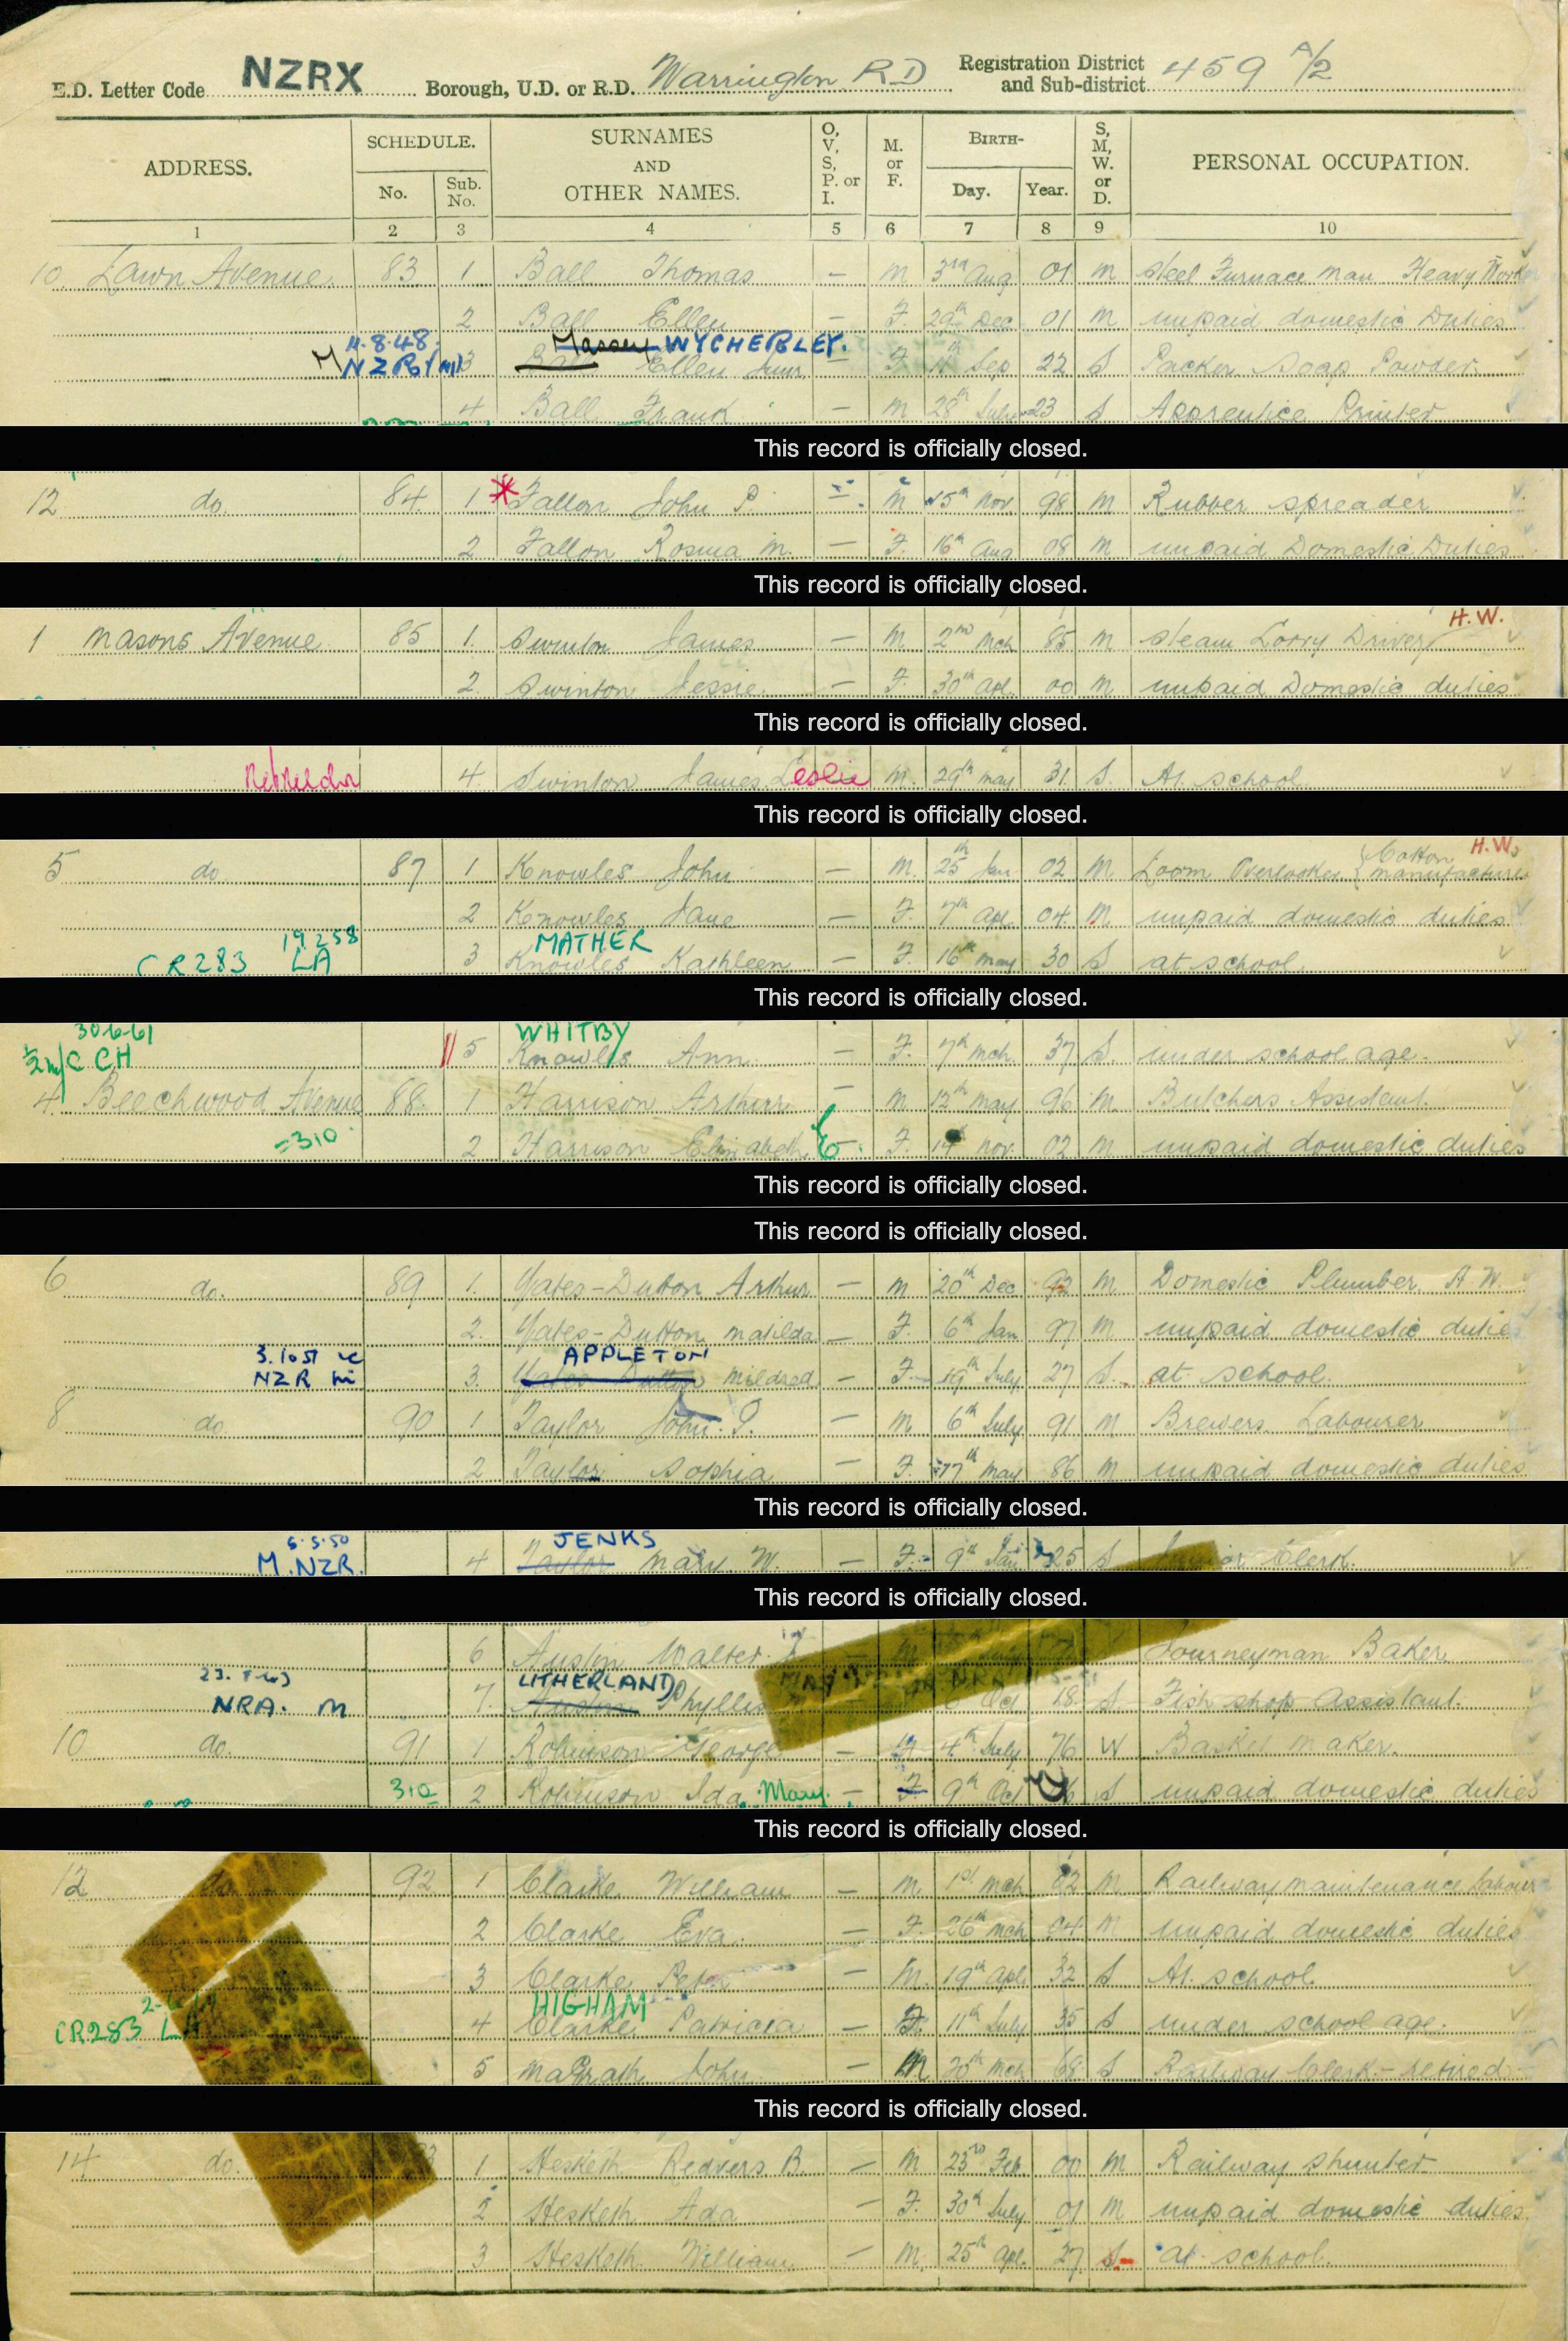 E.D. Letter Code NZRX Borough, U.D. or R.D. Warrington RD Registration District and Sub-district 459 A/2
ADDRESS. SCHEDULE. No. Sub. No. SURNAMES AND OTHER NAMES. O, V, S, P. or I. M. or F. BIRTH- Day. Year. S, M, W. or D. PERSONAL OCCUPATION.
1 2 3 4 5 6 7 8 9 10
10 Lawn Avenue 83 1 Ball Thomas — M 3rd Aug 01 M Steel Furnace Man Heavy Work
2 Ball Ellen — F. 29th Dec 01 M unpaid domestic Duties
11.8.48 Massey WYCHERLEY.
M NZRY 3 Ball Ellen Junr — F 11th Sep 22 S Packer Soap Powder
4 Ball Frank — M 28th July 23 S Apprentice Printer
This record is officially closed.
12 do 84 1 * Fallon John P. — M 15th Nov 98 M Rubber spreader
2 Fallon Rosina M. — F. 16th Aug 08 M unpaid Domestic Duties
This record is officially closed.
H.W.
1 Masons Avenue 85 1. Swinton James — M 2nd Mch 85 M Steam Lorry Driver
2. Swinton Jessie — F. 30th Apl. 00 M unpaid Domestic duties
This record is officially closed.
4 Swinton James Leslie M. 29th May 31. S. At school
This record is officially closed.
5 do 87 1 Knowles John — M. 25th Jan 02 M Loom Overlooker { Cotton manufacture H.W.
2 Knowles Jane — F. 7th Apl. 04 M unpaid domestic duties
19 2 58 MATHER
CR283 LA 3 Knowles Kathleen — F. 16th May 30 S at school
This record is officially closed.
30-6-61 WHITBY
CCH 5 Knowles Ann — F. 7th Mch. 37 S. under school age.
4 Beechwood Avenue 88 1 Harrison Arthur — M 12th May 96 M. Butchers Assistant.
=310 2 Harrison Elizabeth E — F. 14th Nov. 02 M unpaid domestic duties
This record is officially closed.
This record is officially closed.
6 do. 89 1. Yates-Dutton Arthur — M 20th Dec 92 M Domestic Plumber. A.W.
2. Yates-Dutton Matilda — F. 6th Jan 97 M unpaid domestic duties
3.10 51 APPLETON
NZR 3. Yates Dutton Mildred — F. 19th July 27 S. at school.
8 do 90 1 Taylor John. — M 6th July 91 M Brewers Labourer
2 Taylor Sophia — F. 17th May 86 M unpaid domestic duties
This record is officially closed.
5.5.50 JENKS
M.NZR. 4 Taylor Mary W. — F. 9th Jan 25 S Junior Clerk.
This record is officially closed.
6 Austin Walter Journeyman Baker
LITHERLAND
NRA. M 7. Austin Phyllis Oct 18. S. Fish shop Assistant.
10 do. 91 1 Robinson George — M 4th July 76 W Basket maker.
310 2 Robinson Ida. Mary. — F 9th Oct S unpaid domestic duties
This record is officially closed.
12 do 92 1 Clarke William — M. 1st Mch 82 M Railway maintenance labourer
2 Clarke Eva. — F. 26th Mch 94 M unpaid domestic duties
3 Clarke Peter — M. 19th Apl 32 S At school.
HIGHAM
CR283 LA 4 Clarke Patricia — F. 11th July 35 S under school age.
5 McGrath John — M 20th Mch 68 S Railway Clerk - retired
This record is officially closed.
14 do. 93 1 Hesketh Redvers B. — M 23rd Feb 00 M Railway shunter
2 Hesketh Ada — F. 30th July 01 M unpaid domestic duties
3 Hesketh William — M. 25th Apl. 27 S. at school.